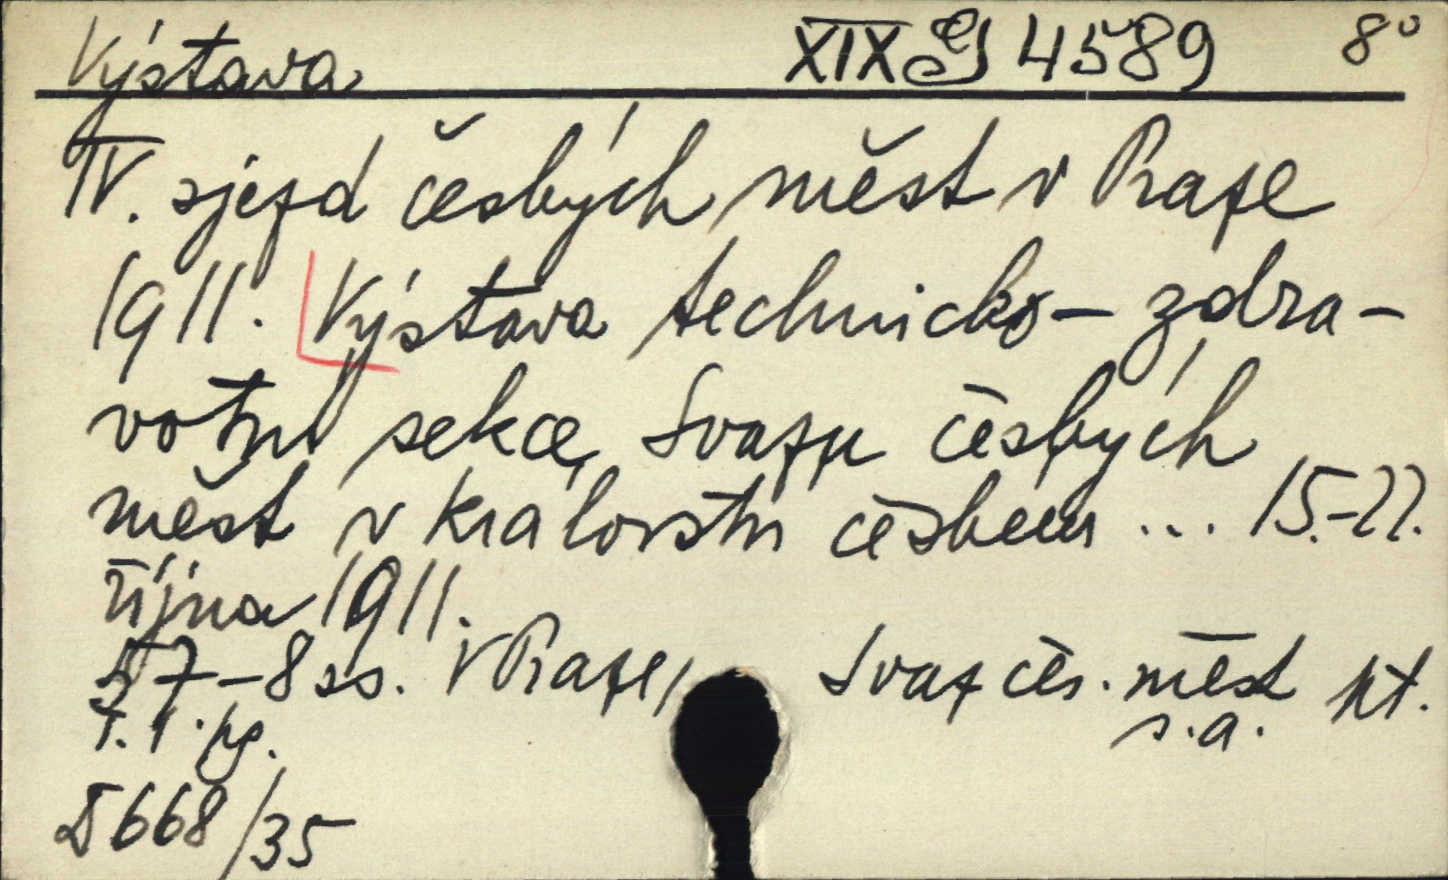 Výstava XIX G 4589 8°
IV. sjezd českých měst v Praze
1911. Výstava technicko-zdra-
votní sekce Svazu českých
měst v království českém ... 15.-22.
října 1911.
57-8 ss. V Praze, Svaz čes. měst
s.a.
D 668/35